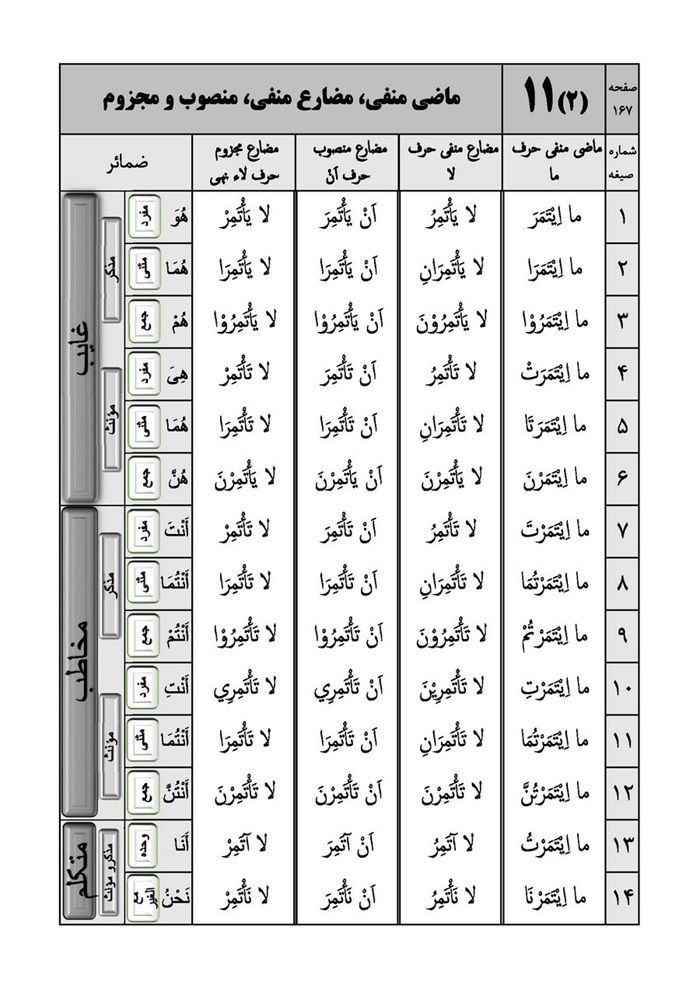 صفحه ۱۶۷ ۱۱(۲) ماضی منفی، مضارع منفی، منصوب و مجزوم
شماره صیغه ماضی منفی حرف ما مضارع منفی حرف لا مضارع منصوب حرف اَنْ مضارع مجزوم حرف لاء نهی ضمائر
۱ ما اِیْتَمَرَ لا یَأْتَمِرُ اَنْ یَأْتَمِرَ لا یَأْتَمِرْ هُوَ مفرد مذکر غایب
۲ ما اِیْتَمَرَا لا یَأْتَمِرَانِ اَنْ یَأْتَمِرَا لا یَأْتَمِرَا هُمَا مثنی
۳ ما اِیْتَمَرُوْا لا یَأْتَمِرُوْنَ اَنْ یَأْتَمِرُوْا لا یَأْتَمِرُوْا هُمْ جمع
۴ ما اِیْتَمَرَتْ لا تَأْتَمِرُ اَنْ تَأْتَمِرَ لا تَأْتَمِرْ هِیَ مفرد مؤنث
۵ ما اِیْتَمَرَتَا لا تَأْتَمِرَانِ اَنْ تَأْتَمِرَا لا تَأْتَمِرَا هُمَا مثنی
۶ ما اِیْتَمَرْنَ لا یَأْتَمِرْنَ اَنْ یَأْتَمِرْنَ لا یَأْتَمِرْنَ هُنَّ جمع
۷ ما اِیْتَمَرْتَ لا تَأْتَمِرُ اَنْ تَأْتَمِرَ لا تَأْتَمِرْ أَنْتَ مفرد مذکر مخاطب
۸ ما اِیْتَمَرْتُمَا لا تَأْتَمِرَانِ اَنْ تَأْتَمِرَا لا تَأْتَمِرَا أَنْتُمَا مثنی
۹ ما اِیْتَمَرْتُمْ لا تَأْتَمِرُوْنَ اَنْ تَأْتَمِرُوْا لا تَأْتَمِرُوْا أَنْتُمْ جمع
۱۰ ما اِیْتَمَرْتِ لا تَأْتَمِرِیْنَ اَنْ تَأْتَمِرِي لا تَأْتَمِرِي أَنْتِ مفرد مؤنث
۱۱ ما اِیْتَمَرْتُمَا لا تَأْتَمِرَانِ اَنْ تَأْتَمِرَا لا تَأْتَمِرَا أَنْتُمَا مثنی
۱۲ ما اِیْتَمَرْتُنَّ لا تَأْتَمِرْنَ اَنْ تَأْتَمِرْنَ لا تَأْتَمِرْنَ أَنْتُنَّ جمع
۱۳ ما اِیْتَمَرْتُ لا آتَمِرُ اَنْ آتَمِرَ لا آتَمِرْ أَنَا وحده مذکر و مؤنث متکلم
۱۴ ما اِیْتَمَرْنَا لا نَأْتَمِرُ اَنْ نَأْتَمِرَ لا نَأْتَمِرْ نَحْنُ مع الغیر